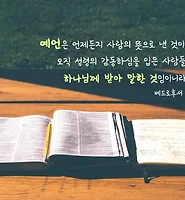 예언은 언제든지 사람의 뜻으로 낸 것이
오직 성령의 감동하심을 입은 사람들
하나님께 받아 말한 것임이니라
베드로후서